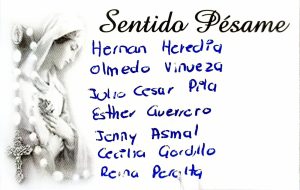 Sentido Pésame
Hernan Heredia
Olmedo Vinueza
Julio Cesar Pita
Esther Guerrero
Jenny Asmal
Cecilia Gordillo
Reina Peralta